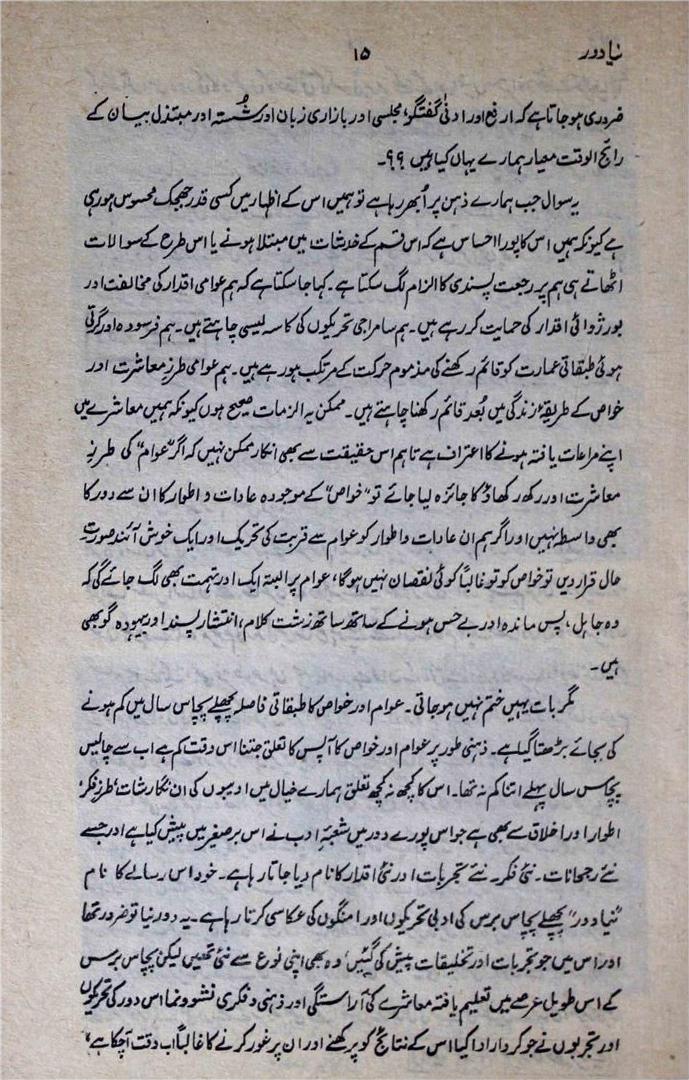 نیا دور
۱۵
ضروری ہو جاتا ہے کہ ارفع اور ادنیٰ گفتگو، مجلسی اور بازاری زبان اور شُستہ اور مبتذل بیان کے
رائج الوقت معیار ہمارے یہاں کیا ہیں ؟؟۔
یہ سوال جب ہمارے ذہن پر اُبھر رہا ہے تو ہمیں اس کے اظہار میں کسی قدر جھجک محسوس ہو رہی
ہے کیونکہ ہمیں اس کا پورا احساس ہے کہ اس قسم کے خدشات میں مبتلا ہونے یا اس طرح کے سوالات
اٹھاتے ہی ہم پر رجعت پسندی کا الزام لگ سکتا ہے۔ کہا جا سکتا ہے کہ ہم عوامی اقدار کی مخالفت اور
بورژوائی اقدار کی حمایت کر رہے ہیں۔ ہم سامراجی تحریکوں کی کاسہ لیسی چاہتے ہیں۔ ہم فرسودہ اور گرتی
ہوئی طبقاتی عمارت کو قائم رکھنے کی مذموم حرکت کے مرتکب ہو رہے ہیں۔ ہم عوامی طرزِ معاشرت اور
خواص کے طریقۂ زندگی میں بُعد قائم رکھنا چاہتے ہیں۔ ممکن یہ الزمات صحیح ہوں کیونکہ ہمیں معاشرے میں
اپنے مراعات یافتہ ہونے کا اعتراف ہے تاہم اس حقیقت سے بھی انکار ممکن نہیں کہ اگر "عوام" کی طرزِ
معاشرت اور رکھ رکھاؤ کا جائزہ لیا جائے تو "خواص" کے موجودہ عادات و اطوار کا ان سے دور کا
بھی واسطہ نہیں اور اگر ہم ان عادات و اطوار کو عوام سے قربت کی تحریک اور ایک خوش آئند صورتِ
حال قرار دیں تو خواص کو تو غالباً کوئی نقصان نہیں ہوگا، عوام پر البتہ ایک اور تہمت بھی لگ جائے گی کہ
وہ جاہل، پس ماندہ اور بے حس ہونے کے ساتھ ساتھ زشت کلام، انتشار پسند اور بیہودہ گو بھی
ہیں۔
مگر بات یہیں ختم نہیں ہو جاتی۔ عوام اور خواص کا طبقاتی فاصلہ پچھلے پچاس سال میں کم ہونے
کی بجائے بڑھتا گیا ہے۔ ذہنی طور پر عوام اور خواص کا آپس کا تعلق جتنا اس وقت کم ہے اب سے چالیس
پچاس سال پہلے اتنا کم نہ تھا۔ اس کا کچھ نہ کچھ تعلق ہمارے خیال میں ادیبوں کی ان نگارشات، طرزِ فکر،
اطوار اور اخلاق سے بھی ہے جو اس پورے دور میں شعبۂ ادب نے اس برصغیر میں پیش کیا ہے اور جسے
نئے رجحانات۔ نئی فکر۔ نئے تجربات اور نئی اقدار کا نام دیا جاتا رہا ہے۔ خود اس رسالے کا نام
"نیا دور" پچھلے پچاس برس کی ادبی تحریکوں اور امنگوں کی عکاسی کرتا رہا ہے۔ یہ دور نیا تو ضرور تھا
اور اس میں جو تجربات اور تخلیقات پیش کی گئیں، وہ بھی اپنی نوع سے نئی تھیں لیکن پچاس برس
کے اس طویل عرصے میں تعلیم یافتہ معاشرے کی آراستگی اور ذہنی و فکری نشو و نما اس دور کی تحریکوں
اور تجربوں نے جو کردار ادا کیا اس کے نتائج کو پرکھنے اور ان پر غور کرنے کا غالباً اب وقت آچکا ہے،